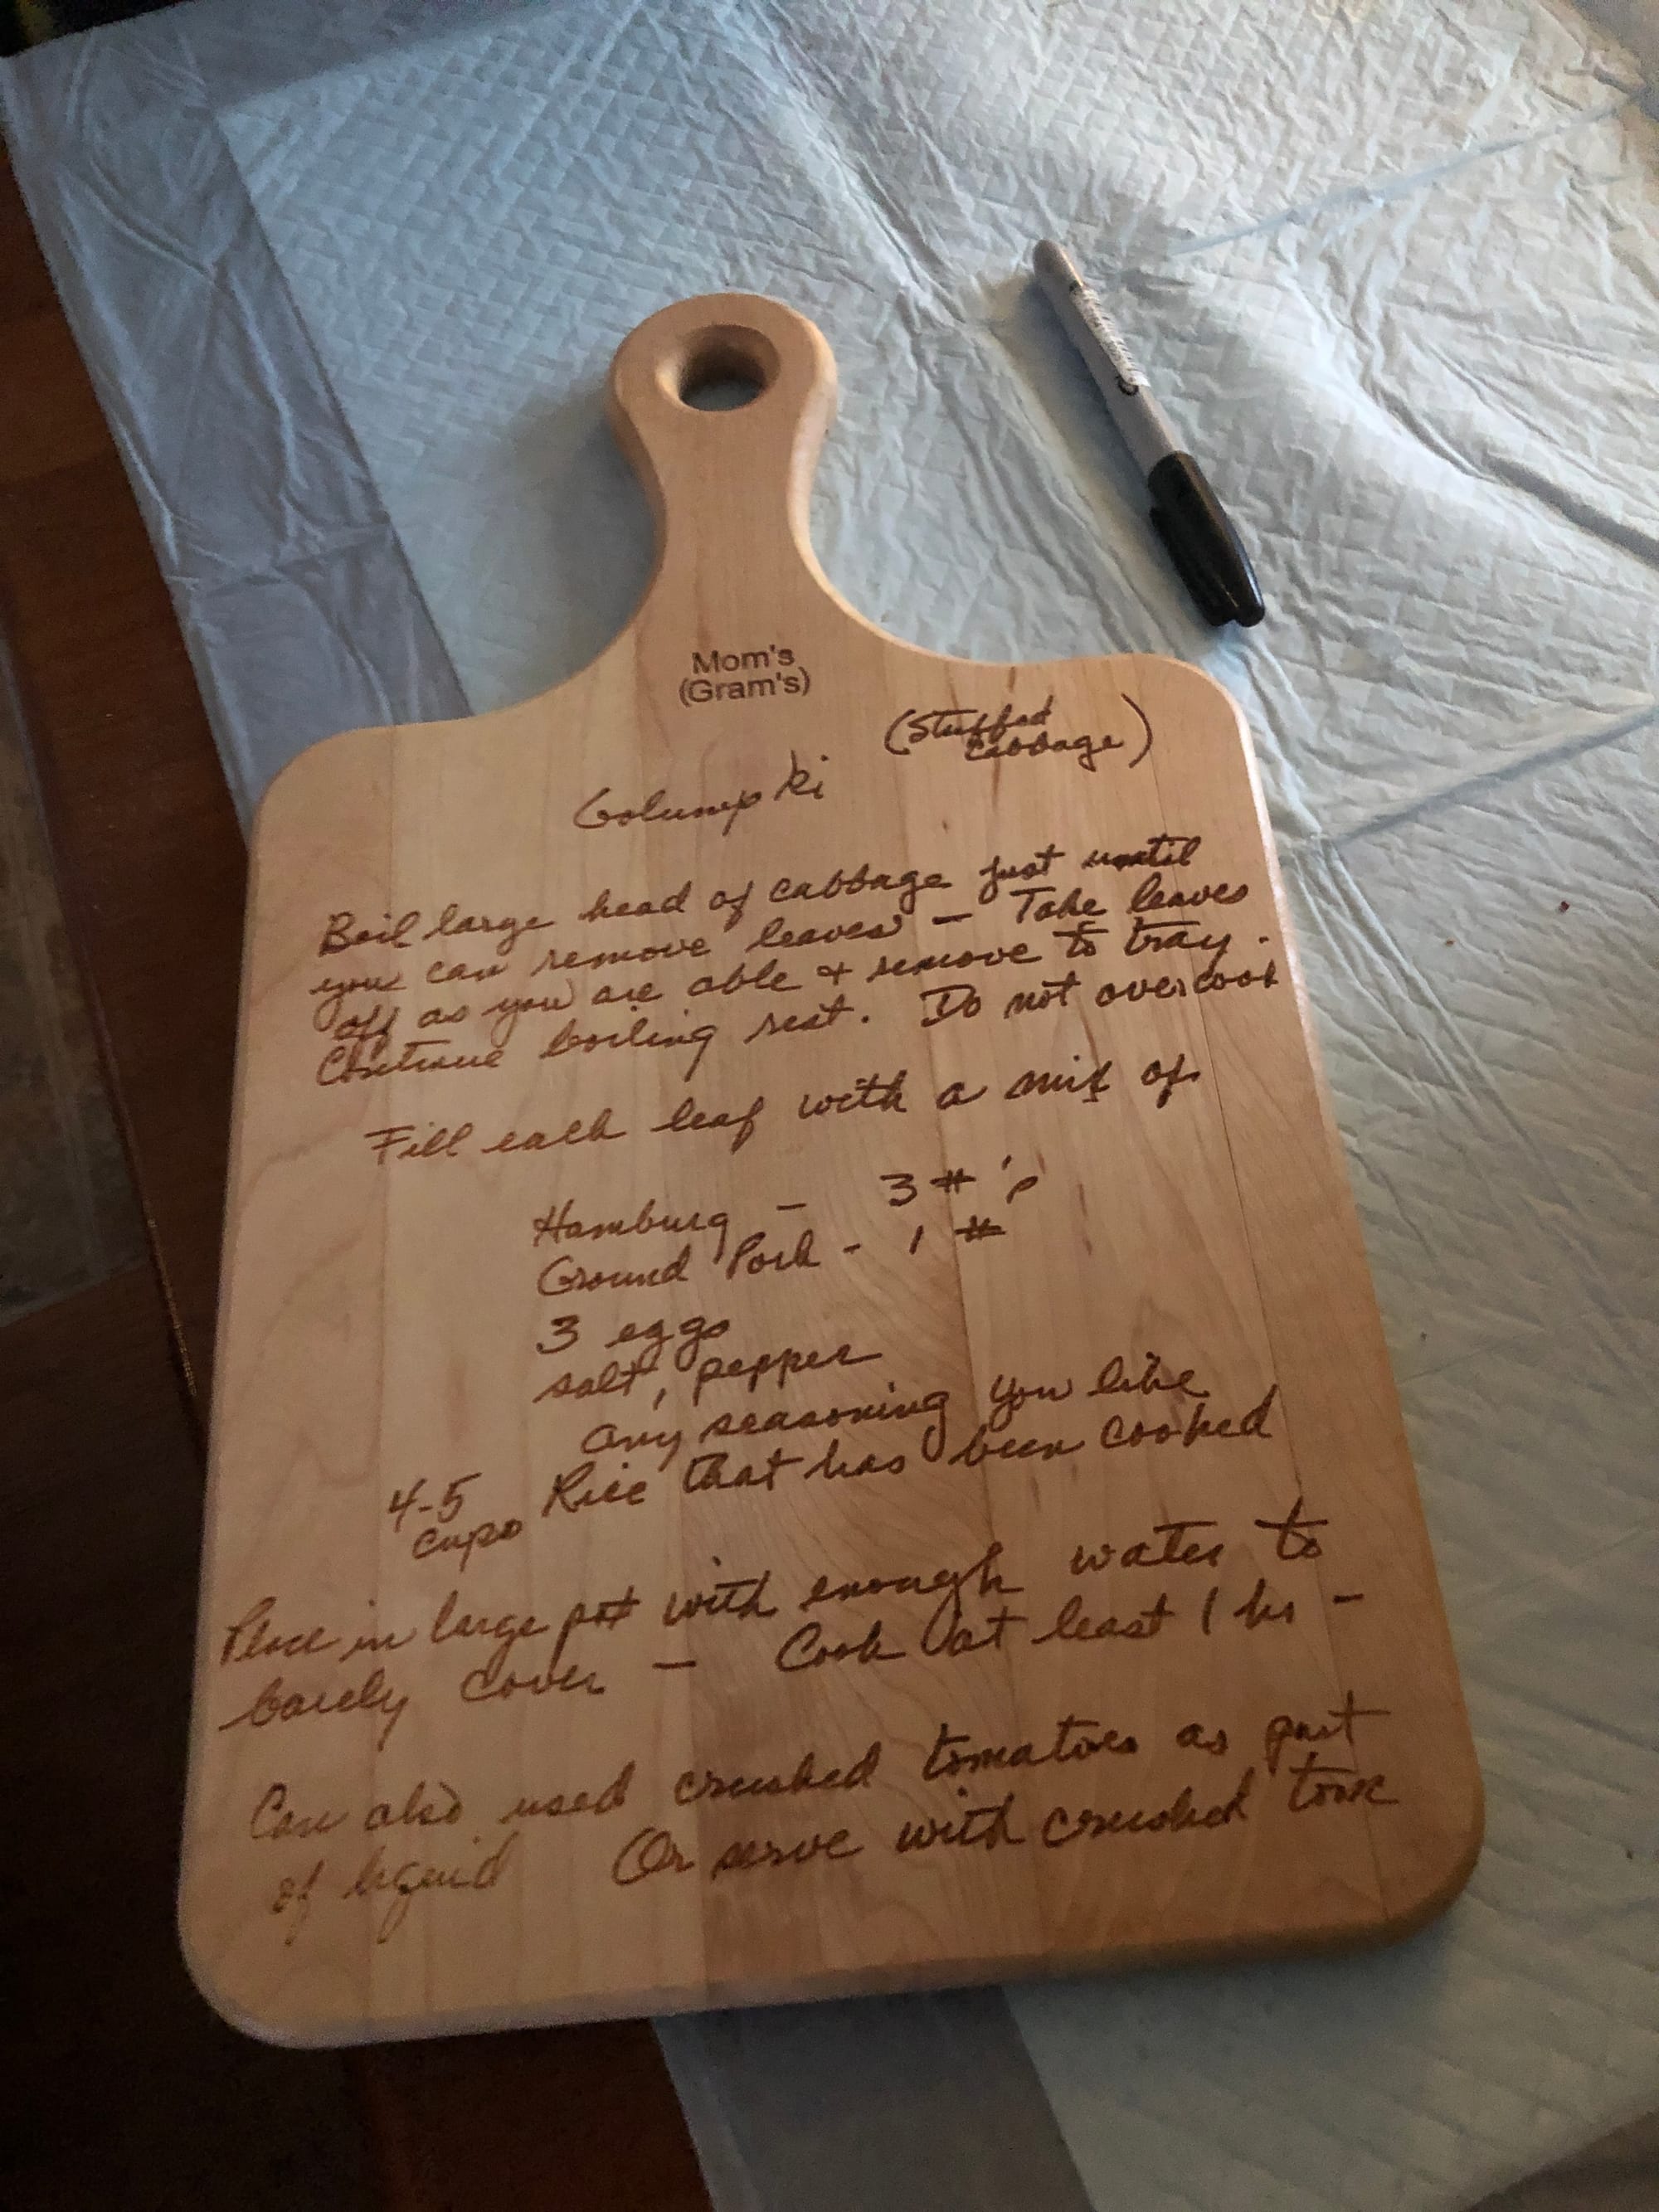 Mom's
(Gram's)
(Stuffed
Cabbage)
Golumpki
Boil large head of cabbage just until
you can remove leaves — Take leaves
off as you are able + remove to tray.
Continue boiling rest. Do not overcook
Fill each leaf with a mix of
Hamburg - 3 #'s
Ground Pork - 1 #
3 eggs
salt, pepper
any seasoning you like
4-5 Rice that has been cooked
cups
Place in large pot with enough water to
barely cover — Cook at least 1 hr -
Can also used crushed tomatoes as part
of liquid Or serve with crushed